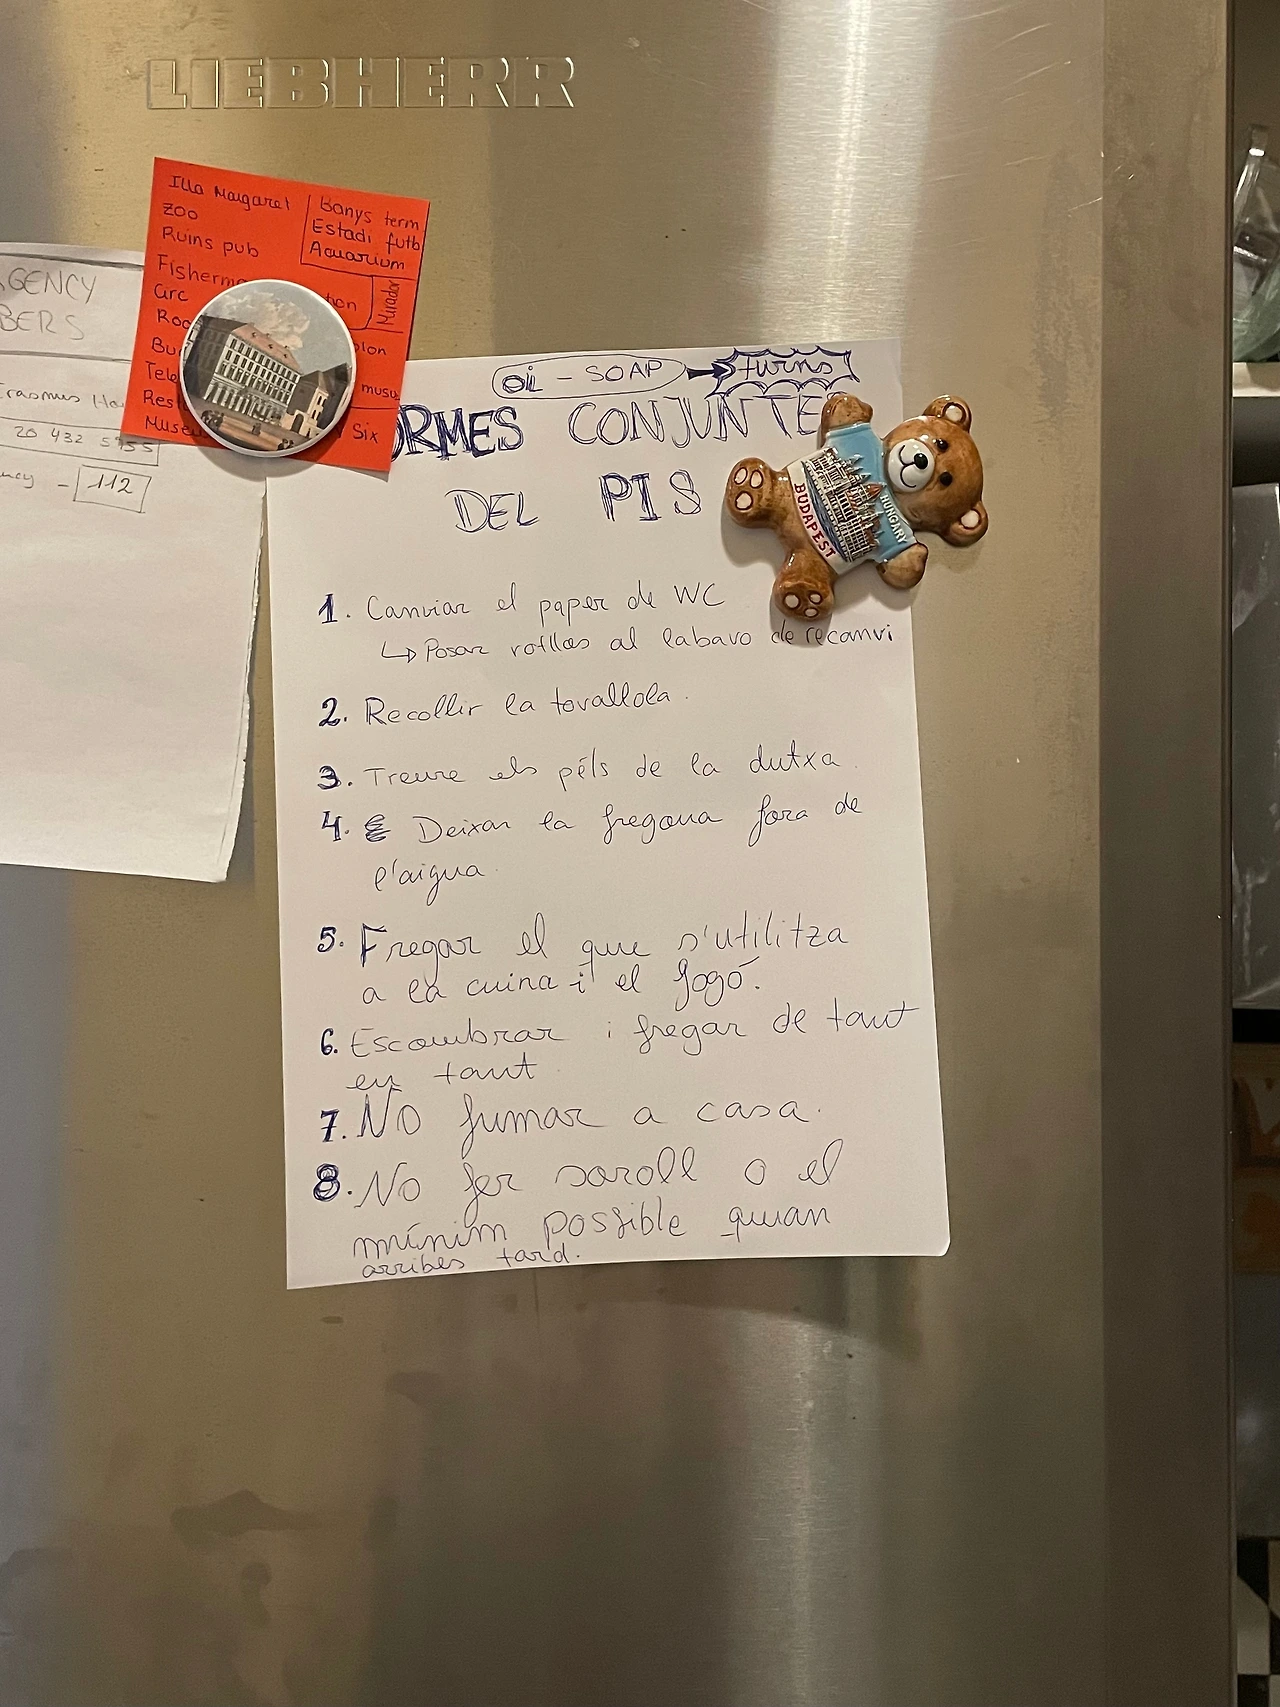 LIEBHERR
Illa Margaret
ZOO
Ruins pub
Banys term
Estadi futb
Aquarium
Circ
Mirador
musu
Six
GENCY
BERS
Erasmus
20 432 5955
- 112
OIL - SOAP → turns
ORMES CONJUNTE
DEL PIS
BUDAPEST
HUNGARY
1. Canviar el paper de WC
↳ Posar rotllos al labavo de recanvi
2. Recollir la tovallola.
3. Treure els péls de la dutxa.
4. Deixar la fregona fora de
l'aigua.
5. Fregar el que s'utilitza
a la cuina i el fogó.
6. Escombrar i fregar de tant
en tant.
7. No fumar a casa.
8. No fer soroll o el
mínim possible quan
arribes tard.